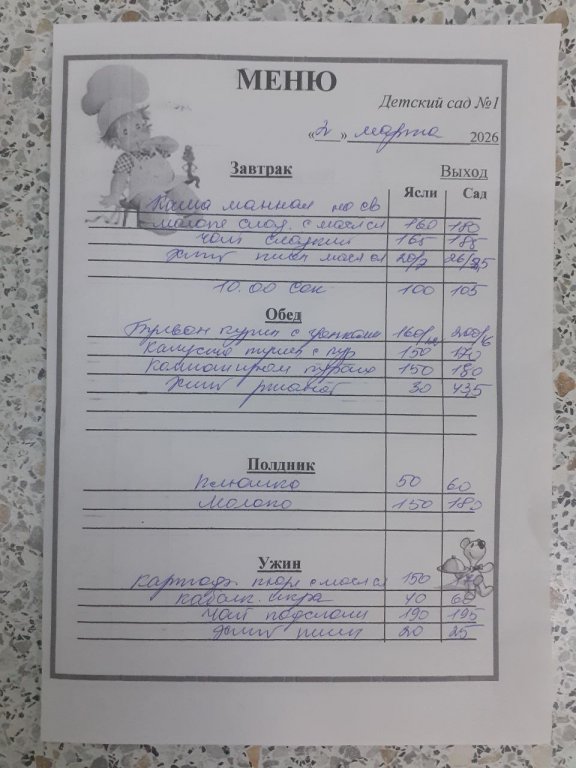 МЕНЮ
Детский сад №1
«2» марта 2026
Завтрак Выход
Ясли Сад
Каша манная на св
молоке слад. с маслом 160 180
Чай сладкий 165 185
Хлеб пшен масло 20/7
10.00 Сок 100 105
Обед
Бульон куриц с гренками 160/ 200/
Капуста тушен с кур 150 170
Компот 150 180
Хлеб ржаной 30 43,5
Полдник
Плюшка 50 60
Молоко 150 180
Ужин
Картоф. пюре с маслом 150 170
Кабачк. икра 40 60
Чай подслащ 190 195
Хлеб пшен 20 25